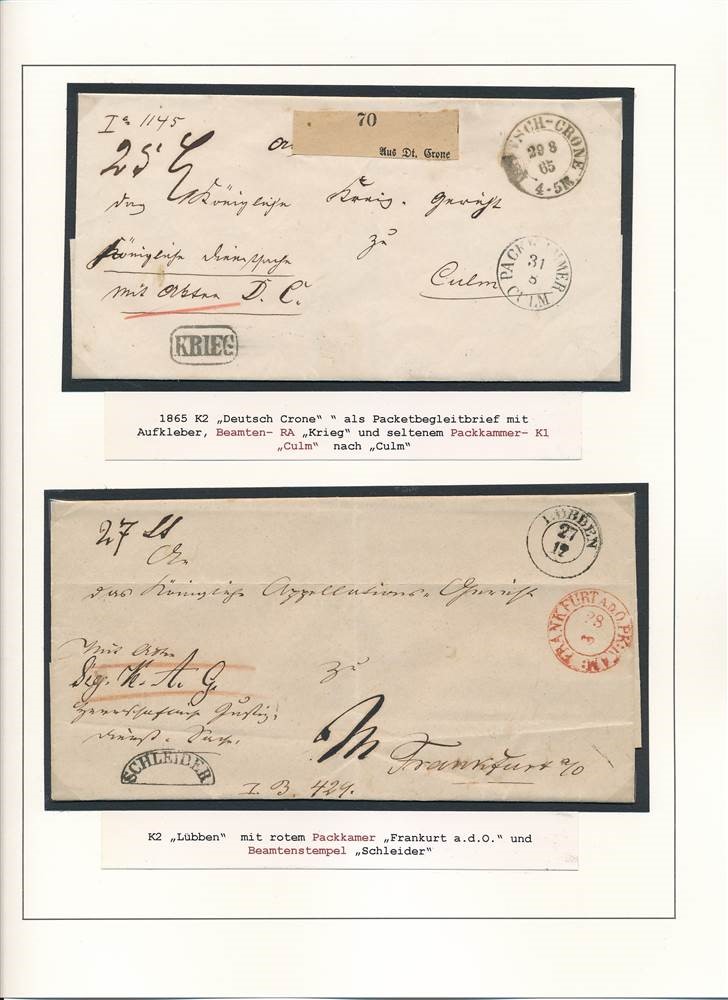 Ia 1145
70
Aus Dt. Crone
25
TSCH-CRONE
29 8
65
4-5N.
An
das Königliche Kreis. Gericht
zu
Königliche Dienstsache
mit Akten D. C.
Culm
PACKKAMMER
31
8
CULM
KRIEG
1865 K2 „Deutsch Crone“ “ als Packetbegleitbrief mit
Aufkleber, Beamten- RA „Krieg“ und seltenem Packkammer- K1
„Culm“ nach „Culm“
27
LÜBBEN
27
12
An
das Königliche Appellations-Gericht
FRANKFURT A.D.O. PK:KAM:
28
Mit Akten
Sig. K. A. G.
zu
Herrschaftliche Justiz-
dienst. Sache.
SCHLEIDER
Frankfurt a/O
I. B. 429.
K2 „Lübben“ mit rotem Packkamer „Frankurt a.d.O.“ und
Beamtenstempel „Schleider“